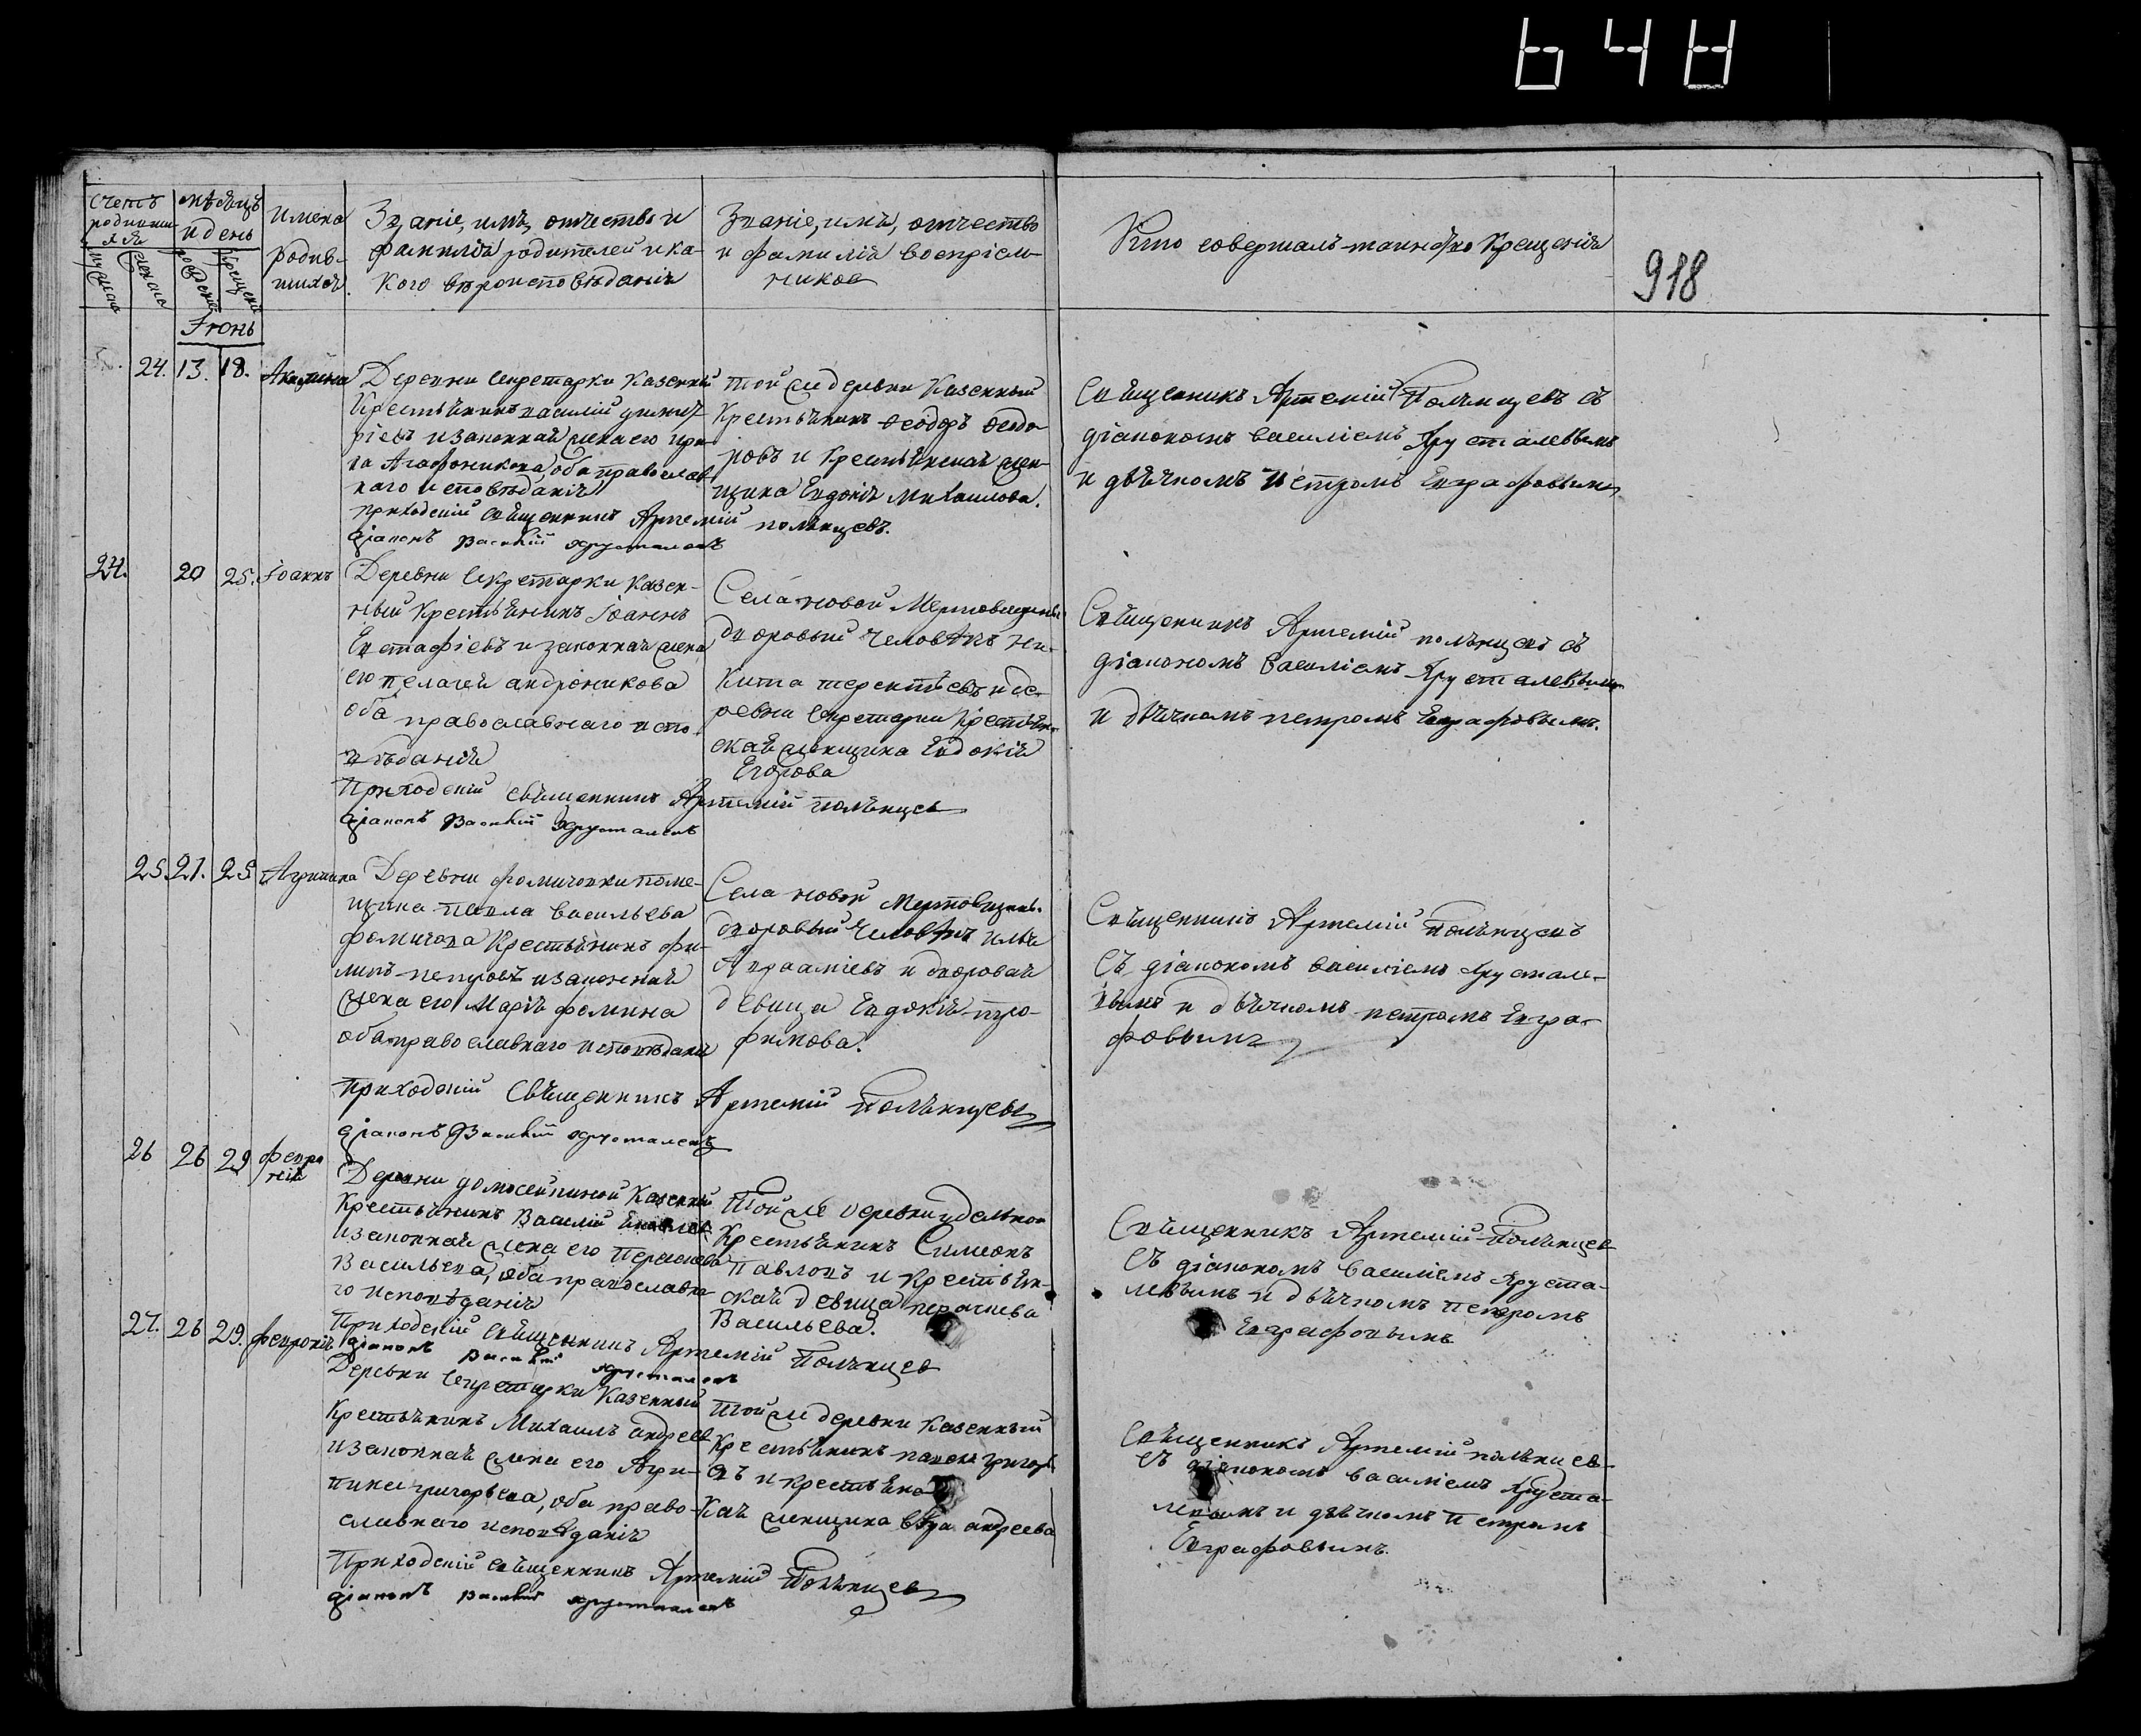 648
918
Счетъ родивши-
хся
мѣсяцъ
и день
имена
родив-
шихся.
Званіе, имя, отчество и
фамилія родителей и ка-
кого вѣроисповѣданія
Званіе, имя, отчество
и фамилія воспріем-
никовъ
Кто совершалъ таинство Крещенія
Іюнь
24. 13. 18. Акилина
Деревни Секретарки Казенный
Крестьянинъ василій
и законная жена его
Агафоникова, оба православ-
наго исповѣданія
приходскій священникъ Артемій
діаконъ Василій Хрусталевъ
той же деревни Казенный
Крестьянинъ Ѳеодоръ Ѳеодо-
ровъ и Крестьянская жен-
щина Евдокія Михаилова.
польнцевъ.
Священникъ Артемій Польнцевъ съ
діакономъ Василіемъ Хрусталевымъ
и дьячкомъ Петромъ Евграфовымъ
24. 20 25. Іоаннъ
Деревни Секретарки Казен-
ный Крестьянинъ Іоаннъ
Евстафіевъ и законная жена
его пелагея андроникова
оба православнаго испо-
вѣданія
Приходскій священникъ Артемій польнцевъ
діаконъ Василій Хрусталевъ
Села новой
дворовый человѣкъ Ни-
кита терентьевъ и де-
ревни Секретарки Крестьян-
ская женщина Евдокія
Егорова
Священникъ Артемій польнцевъ съ
діакономъ Василіемъ Хрусталевымъ
и дьячкомъ петромъ Евграфовымъ.
25. 21. 25 Агрипина
Деревни фомичовки поме-
щика павла васильева
фомичова Крестьянинъ фи-
липъ петровъ и законная
жена его Марія фомина
оба православнаго исповѣданія
Приходскій Священникъ Артемій Польнцевъ
діаконъ Василій Хрусталевъ
Села новой
дворовый человѣкъ илья
Аврааміевъ и дворовая
девица Евдокія тро-
фимова.
Священникъ Артемій Польнцевъ
съ діакономъ василіемъ Хрустале-
вымъ и дьячкомъ петромъ Евгра-
фовымъ
26 26 29 февро
нія
Деревни Казенный
Крестьянинъ Василій
и законная жена его
Васильева, оба православна-
го исповѣданія
Приходскій Священникъ Артемій Польнцев
діаконъ Василій Хрусталевъ
Той же деревни удельной
Крестьянинъ Симеонъ
павловъ и Крестьян-
ская девица
Васильева.
Священникъ Артемій Польнцев
съ діакономъ Василіемъ Хруста-
левымъ и дьячкомъ петромъ
Евграфовымъ
27. 26 29. февронія
Деревни Секретарки Казенный
Крестьянинъ Михаилъ андреев
и законная жена его Агри-
пина григорьева, оба право-
славнаго исповѣданія
Приходскій священникъ Артемій Польнцев
діаконъ Василій Хрусталевъ
той же деревни Казенный
Крестьянинъ
и крестьянс-
кая женщина вѣра андреева
Священникъ Артемій польнцев
съ діакономъ василіемъ Хруста-
левымъ и дьячкомъ петромъ
Евграфовымъ.